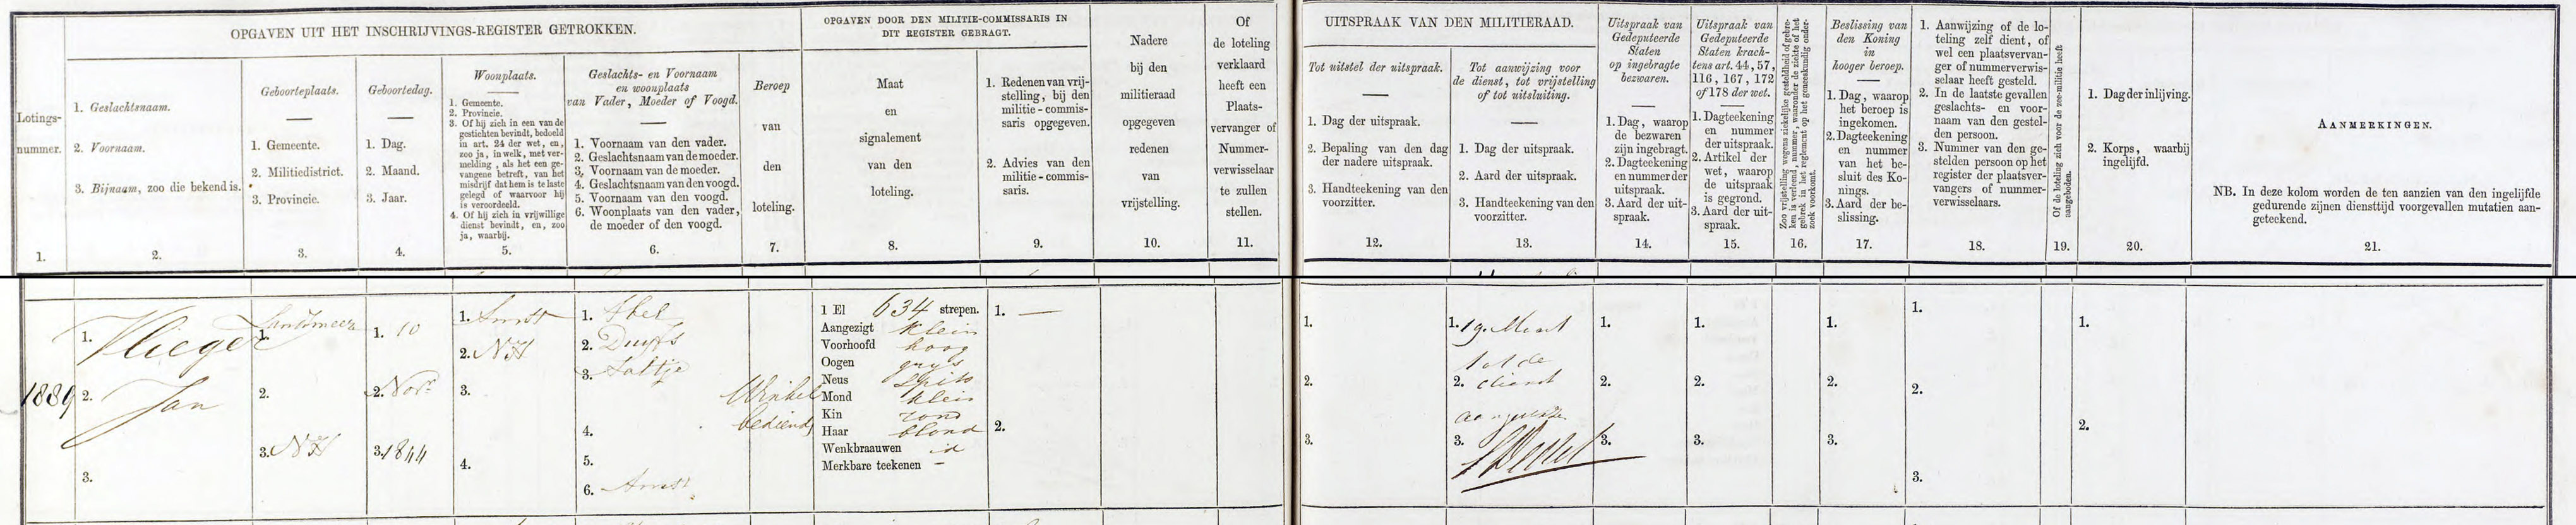 OPGAVEN UIT HET INSCHRIJVINGS-REGISTER GETROKKEN.
Lotings-
nummer.
1.
1. Geslachtsnaam.
2. Voornaam.
3. Bijnaam, zoo die bekend is.
2.
Geboorteplaats.
1. Gemeente.
2. Militiedistrict.
3. Provincie.
3.
Geboortedag.
1. Dag.
2. Maand.
3. Jaar.
4.
Woonplaats.
1. Gemeente.
2. Provincie.
3. Of hij zich in een van de
gestichten bevindt, bedoeld
in art. 24 der wet, en,
zoo ja, in welk, met ver-
melding, als het een ge-
vangene betreft, van het
misdrijf dat hem is te laste
gelegd of waarvoor hij
is veroordeeld.
4. Of hij zich in vrijwillige
dienst bevindt, en, zoo
ja, waarbij.
5.
Geslachts- en Voornaam
en woonplaats
van Vader, Moeder of Voogd.
1. Voornaam van den vader.
2. Geslachtsnaam van de moeder.
3. Voornaam van de moeder.
4. Geslachtsnaam van den voogd.
5. Voornaam van den voogd.
6. Woonplaats van den vader,
de moeder of den voogd.
6.
Beroep
van
den
loteling.
7.
OPGAVEN DOOR DEN MILITIE-COMMISSARIS IN
DIT REGISTER GEBRAGT.
Maat
en
signalement
van den
loteling.
8.
1. Redenen van vrij-
stelling, bij den
militie-commis-
saris opgegeven.
2. Advies van den
militie-commis-
saris.
9.
Nadere
bij den
militieraad
opgegeven
redenen
van
vrijstelling.
10.
Of
de loteling
verklaard
heeft een
Plaats-
vervanger of
Nummer-
verwisselaar
te zullen
stellen.
11.
UITSPRAAK VAN DEN MILITIERAAD.
Tot uitstel der uitspraak.
1. Dag der uitspraak.
2. Bepaling van den dag
der nadere uitspraak.
3. Handteekening van den
voorzitter.
12.
Tot aanwijzing voor
de dienst, tot vrijstelling
of tot uitsluiting.
1. Dag der uitspraak.
2. Aard der uitspraak.
3. Handteekening van den
voorzitter.
13.
Uitspraak van
Gedeputeerde
Staten
op ingebragte
bezwaren.
1. Dag, waarop
de bezwaren
zijn ingebragt.
2. Dagteekening
en nummer der
uitspraak.
3. Aard der uit-
spraak.
14.
Uitspraak van
Gedeputeerde
Staten krach-
tens art. 44, 57,
116, 167, 172
of 178 der wet.
1. Dagteekening
en nummer
der uitspraak.
2. Artikel der
wet, waarop
de uitspraak
is gegrond.
3. Aard der uit-
spraak.
15.
Zoo vrijstelling wegens ziekelijke gesteldheid of gebre-
ken is verleend, nummer, waaronder de ziekte of het
gebrek in het reglement op het geneeskundig onder-
zoek voorkomt.
16.
Beslissing van
den Koning
in
hooger beroep.
1. Dag, waarop
het beroep is
ingekomen.
2. Dagteekening
en nummer
van het be-
sluit des Ko-
nings.
3. Aard der be-
slissing.
17.
1. Aanwijzing of de lo-
teling zelf dient, of
wel een plaatsvervan-
ger of nummerverwis-
selaar heeft gesteld.
2. In de laatste gevallen
geslachts- en voor-
naam van den gestel-
den persoon.
3. Nummer van den ge-
stelden persoon op het
register der plaatsver-
vangers of nummer-
verwisselaars.
18.
Of de loteling zich voor de zee-militie heeft
aangeboden.
19.
1. Dag der inlijving.
2. Korps, waarbij
ingelijfd.
20.
AANMERKINGEN.
NB. In deze kolom worden de ten aanzien van den ingelijfde
gedurende zijnen diensttijd voorgevallen mutatien aan-
geteekend.
21.
1889
1. Vlieger
2. Jan
3.
1. Landsmeer
2.
3. NH
1. 10
2. Novr
3. 1844
1. Amst
2. NH
3.
4.
1. Abel
2. Duyfs
3. Aaltje
4.
5.
6. Amst
Winkel
bediende
1 El 634 strepen.
Aangezigt klein
Voorhoofd hoog
Oogen grijs
Neus spits
Mond klein
Kin rond
Haar blond
Wenkbraauwen id
Merkbare teekenen –
1. —
2.
1.
2.
3.
1. 19 Maart
tot de
2. dienst
aangewezen
3.
1.
2.
3.
1.
2.
3.
1.
2.
3.
1.
2.
3.
1.
2.